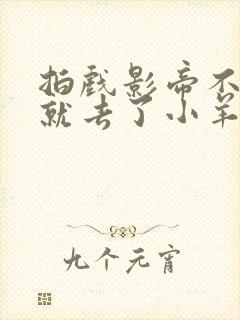 拍戏影帝不
就去了小羊
九个元宵